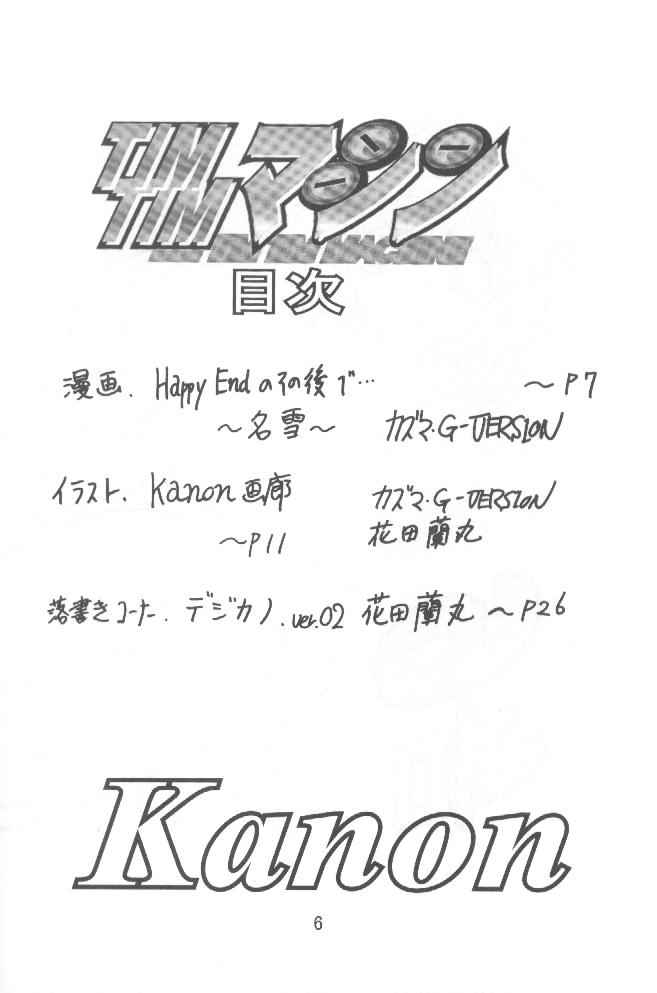 TIM
TIMマシン
目次
漫画. Happy End のその後で… 〜P7
〜名雪〜 カズマ・G-VERSION
イラスト. Kanon画廊 カズマ・G-VERSION
〜P11 花田蘭丸
落書きコーナー. デジカノ. ver.02 花田蘭丸 〜P26
Kanon
6